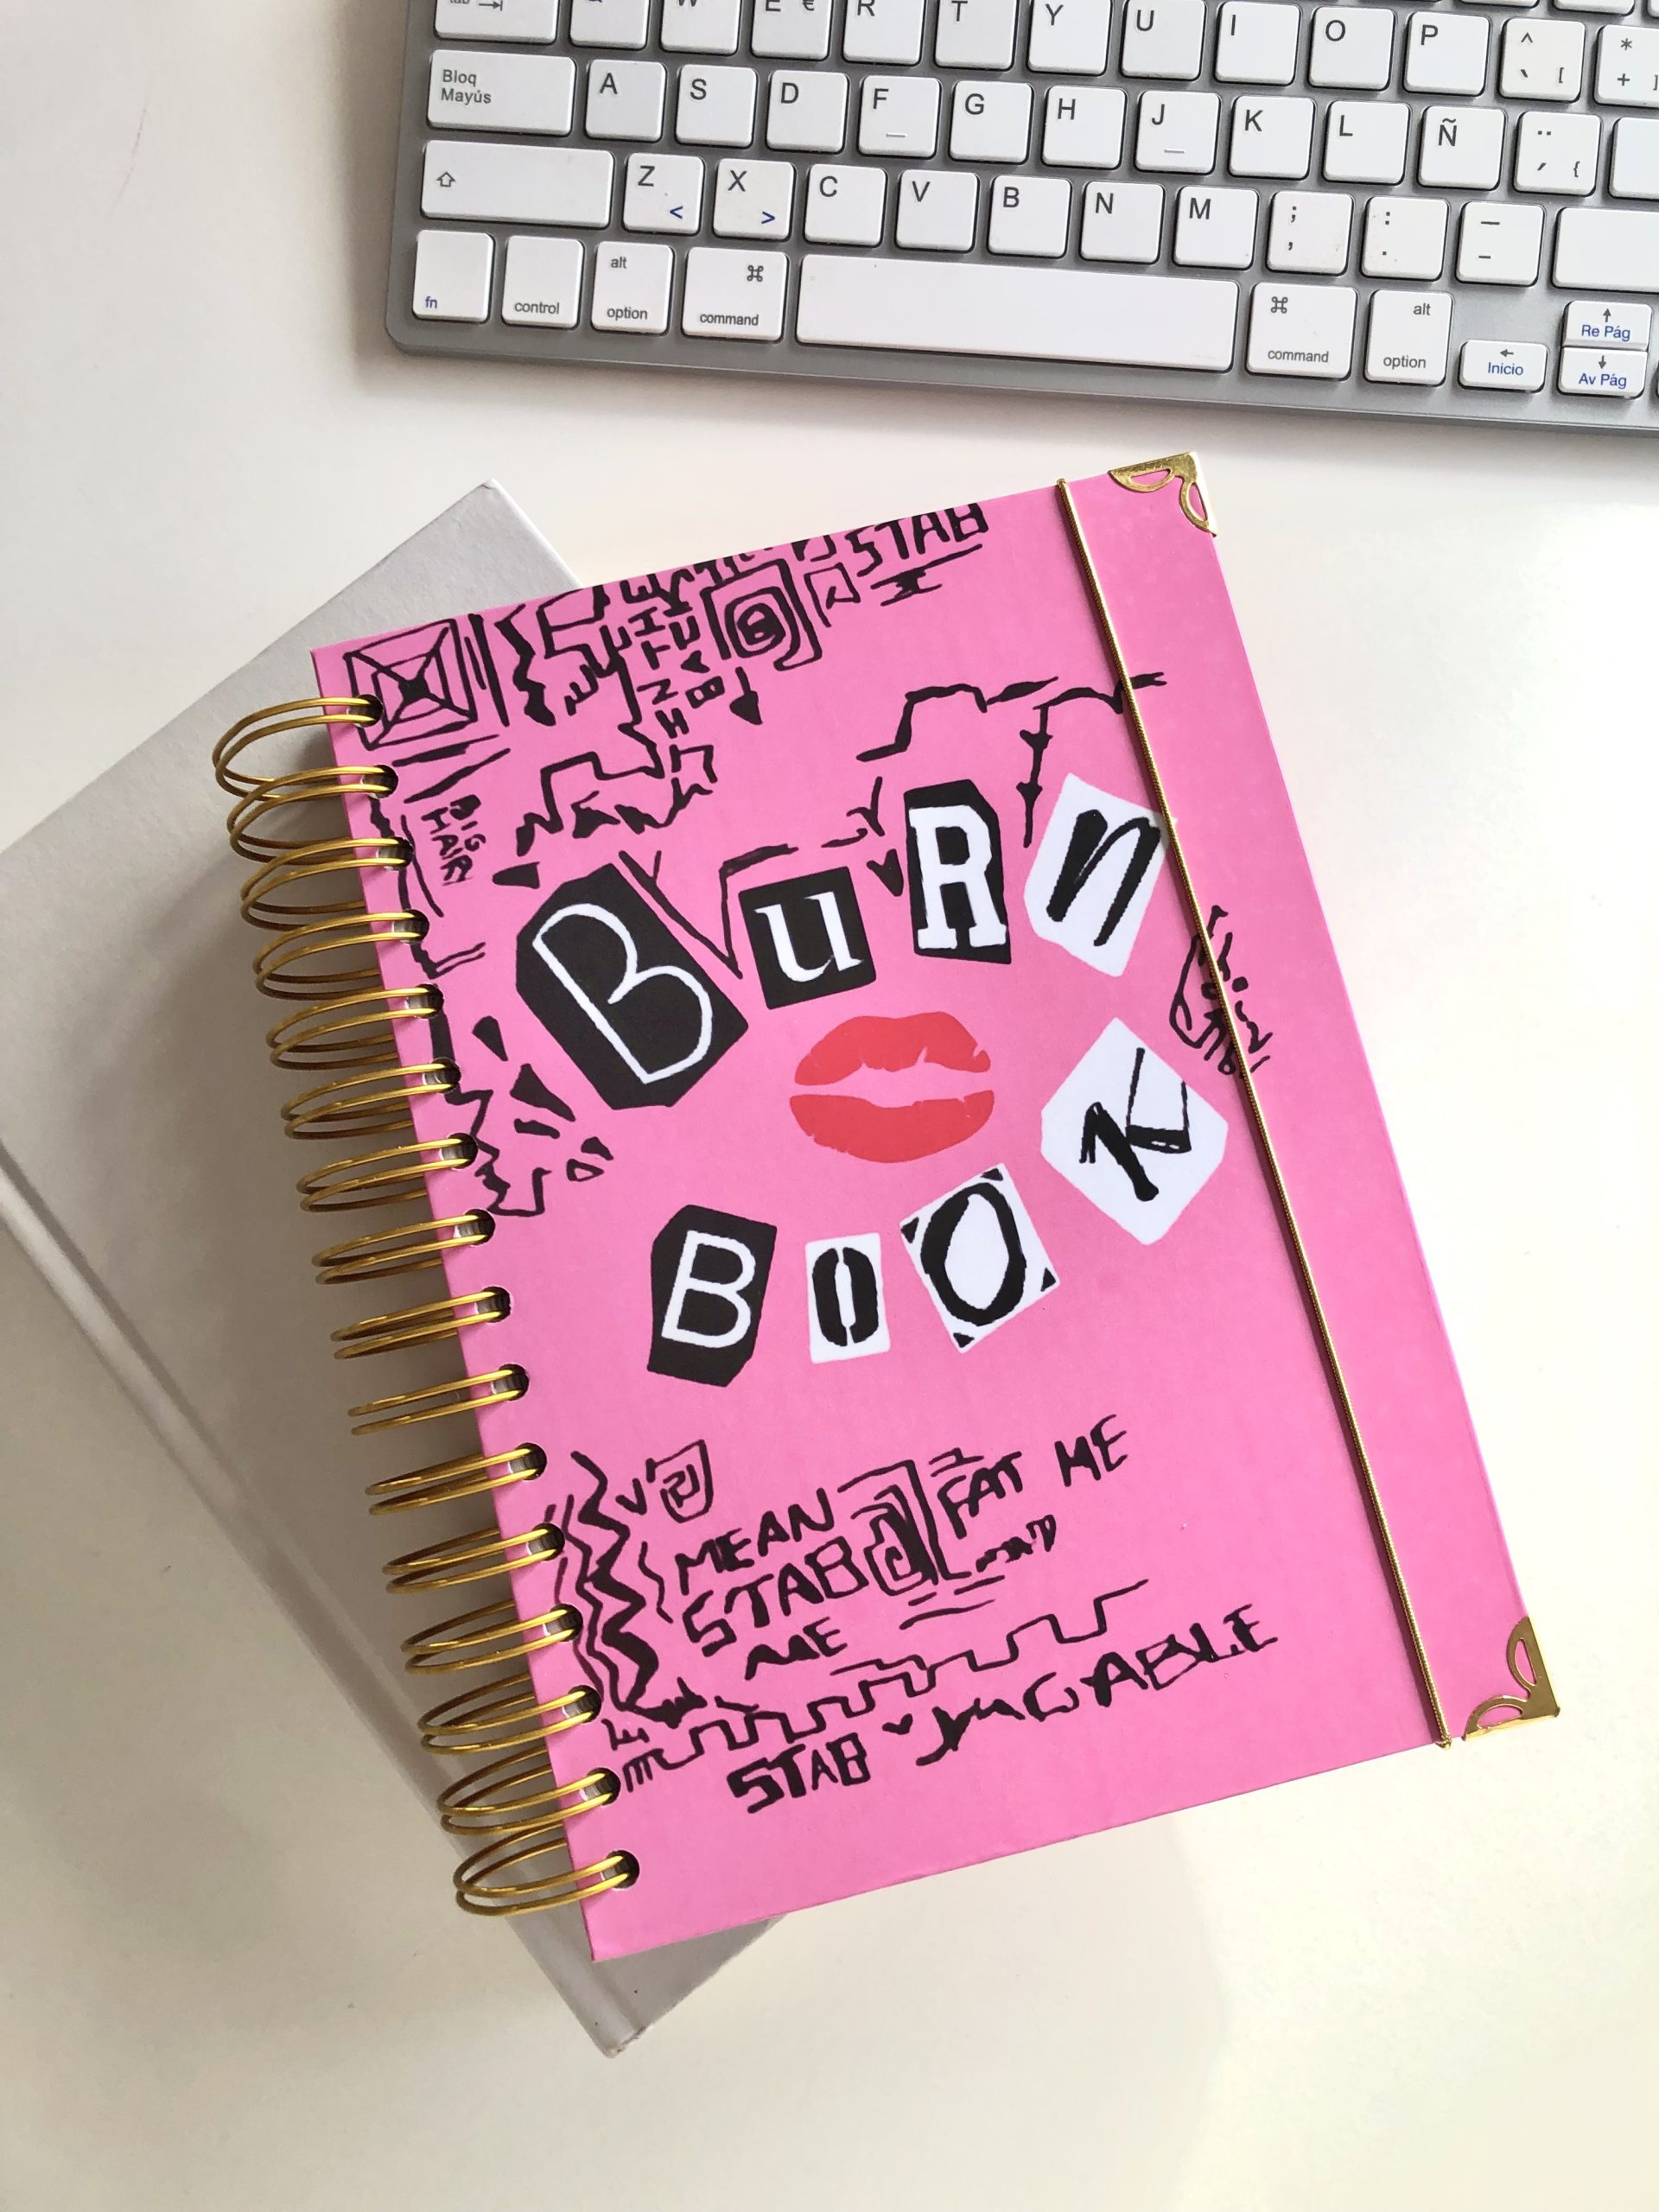 W E € R T Y U I O P ^ ` [ * + ]
Bloq Mayús A S D F G H J K L Ñ ¨ ´ {
Z < X > C V B N M ; , : . — –
fn control alt option ⌘ command ⌘ command alt option Inicio Re Pág Av Pág
STAB
BIG
HAIR
BuRn
BOOK
MEAN
STAB
ME
FAT ME
STAB